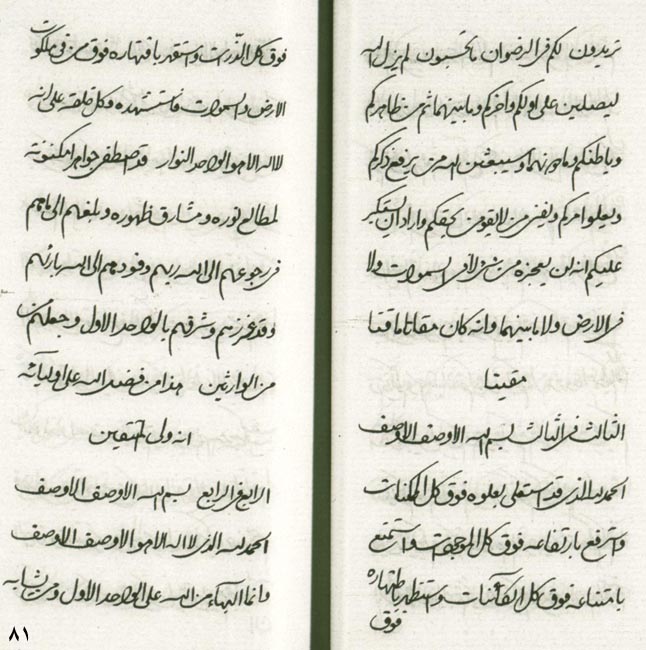 تريدون لكم في الرضوان ما تحبون ان يزل الله
ليصلين على اولكم واخركم وما بينهما ثم من ظاهركم
وباطنكم وما دونهما وسيبعثن الله من يرفع ذكركم
ويعلو امركم من لا يقومن بحقكم واراد ان يستكبر
عليكم انه لن يعجزه من شيء لا في السموات ولا
في الارض ولا ما بينهما وانه كان مقاتا ماقتا
مقيتا
الثالث في الثالث بسم الله الاوصف الاوصف
الحمد لله الذي قد استعلى بعلوه فوق كل الممكنات
واسترفع بارتفاعه فوق كل الموجودات واستمنع
بامتناعه فوق كل الكائنات واستظهر باظهاره
فوق
فوق كل الذرات واستقهر باقتهاره فوق من في ملكوت
الارض والسموات فاستشهده وكل خلقه على انه
لا اله الا هو الواحد النوار قد اصطفى جواهر مكنونة
لمطالع نوره ومشارق ظهوره وبلغهم الى بابهم
في رجوعهم الى الله ربهم وفودهم الى الله بارئهم
وقد عززهم وشرفهم بالواحد الاول وجعلهم
من الوارثين هذا من فضل الله على اوليائه
انه ولي المتقين
الرابع في الرابع بسم الله الاوصف الاوصف
الحمد لله الذي لا اله الا هو الاوصف الاوصف
وانما البهاء من الله على الواحد الاول ومن يشابه
٨١